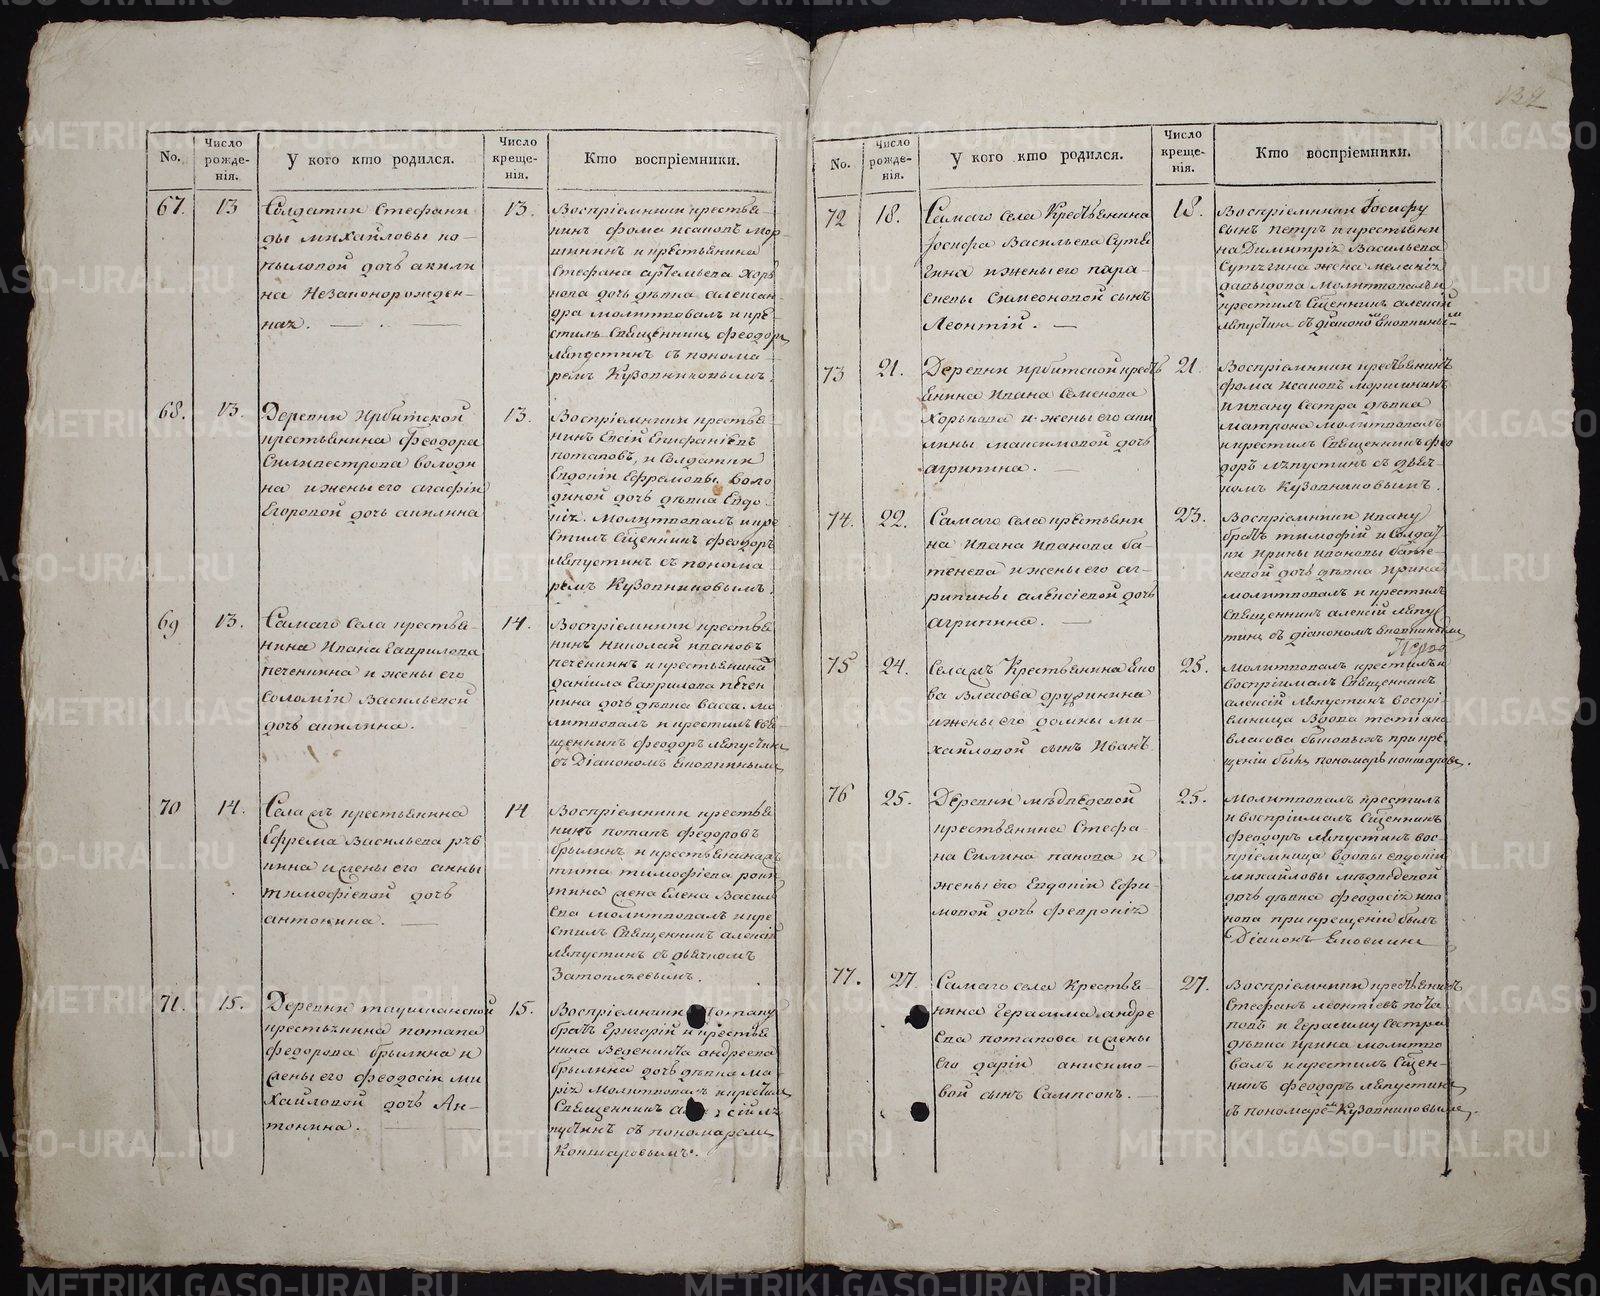 132
No.
Число рожде-нія.
У кого кто родился.
Число креще-нія.
Кто воспріемники.
67.
13
Солдатки Стефани
ды михайловы ко-
пыловой дочь акили
на Незаконорожден-
ная.
13.
Воспріемники крестья-
нинъ фома исаковъ Мор-
шининъ и крестьянина
Стефана артемьева Хорь
кова дочь дѣвка алексан
дра молитвовалъ и кре-
стилъ Священникъ феодоръ
Ляпустинъ съ понома-
ремъ Кузовниковымъ.
68.
13.
Деревни Ирбитской
крестьянина Феодора
Силивестрова володи
на и жены его агафіи
Егоровой дочь акилина
13.
Воспріемники крестья-
нинъ Евсій Епифаніевъ
потаповъ, и Солдатки
Евдокіи Ефремовы воло
диной дочь дѣвка Евдо-
кія. Молитвовалъ и кре
стилъ Сщенникъ феодоръ
Ляпустинъ съ понома
ремъ Кузовниковымъ.
69
13.
Самаго Села крестья-
нина Ивана Гаврилова
печенкина и жены его
Соломіи Васильевой
дочь акилина.
14.
Воспріемники крестья
нинъ Николай ивановъ
печенкинъ и крестьянина
даніила Гаврилова печен
кина дочь дѣвка васса. мо
литвовалъ и крестилъ Свя-
щенникъ феодоръ Ляпустинъ
съ Діакономъ Словцовымъ
70
14.
Села съ крестьянина
Ефрема Васильева
и жены его анны
тимофіевой дочь
антонина.
14
Воспріемники крестья
нинъ потапъ федоровъ
брылинъ и крестьянина
тита тимофіева
жена Елена Василь
ева молитвовалъ и кре-
стилъ Священникъ алексій
Ляпустинъ съ дьячкомъ
Затопляевымъ.
71.
15.
Деревни
крестьянина потапа
федорова брылина и
жены его феодосіи ми
хайловой дочь Ан-
тонина.
15.
Воспріемники Потапу
братъ Григорій и крестья
нина Веденикта андреева
брылина дочь дѣвка ма-
рія молитвовалъ и крестилъ
Священникъ алексій Ля
пустинъ съ пономаремъ
Коншаровымъ.
No.
Число рожде-нія.
У кого кто родился.
Число креще-нія.
Кто воспріемники.
72
18.
Самаго села Крестьянина
Іосифа Васильева Сутя
гина и жены его пара-
скевы Симеоновой сынъ
Леонтій.
18.
Воспріемники Іосифу
сынъ петръ и крестьяни
на Димитрія Васильева
Сутягина жена меланія
давыдова Молитвовалъ и
крестилъ Сщенникъ алексій
Ляпустинъ съ діакономъ Словцовымъ
73
21.
Деревни Ирбитской крестъ
янина Ивана Семенова
Хорькова и жены его аки
лины максимовой дочь
агрипина.
21.
Воспріемники крестьянинъ
фома исаковъ моршининъ
и ивану Сестра дѣвка
матрона молитвовалъ
и крестилъ Священникъ фео
доръ Ляпустинъ съ дьяч-
комъ Кузовниковымъ.
74.
22.
Самаго села крестьяни
на Ивана Иванова ба-
тенева и жены его аг-
рипины алексіевой дочь
агрипина.
23.
Воспріемники ивану
братъ тимофій и Солдат
ки Ирины ивановы бате-
невой дочь дѣвка ирина
молитвовалъ и крестилъ
Священникъ алексій Ляпус
тинъ съ діакономъ Словцовымъ
75
24.
Села съ Крестьянина Яко
ва Власова дружинина
и жены его домны ми-
хайловой сынъ Иванъ
25.
молитвовалъ крестилъ и
воспріималъ Священникъ
алексій Ляпустинъ воспрі-
емница Вдова татіана
власова бытовыхъ при кре-
щеніи былъ пономарь коншаровъ.
76
25.
Деревни мѣдведевой
крестьянина Стефа
на Силина панова и
жены его Евдокіи Ефи-
мовой дочь февронія
25.
Молитвовалъ крестилъ
и воспріималъ Сщенникъ
феодоръ Ляпустинъ вос-
пріемница вдовы евдокіи
михайловы мѣдведевой
дочь дѣвка феодосія ива
нова при крещеніи былъ
Діаконъ Словцовъ
77.
27.
Самаго села Крестья-
нина Герасима андре
ева потапова и жены
его даріи анисимо-
вой сынъ Сампсонъ.
27.
Воспріемники крестьянинъ
Стефанъ леонтіевъ пота
повъ и Герасиму Сестра
дѣвка ирина молитво
валъ и крестилъ Сщен-
никъ феодоръ Ляпустинъ
съ пономаремъ Кузовниковымъ.
METRIKI.GASO-URAL.RU